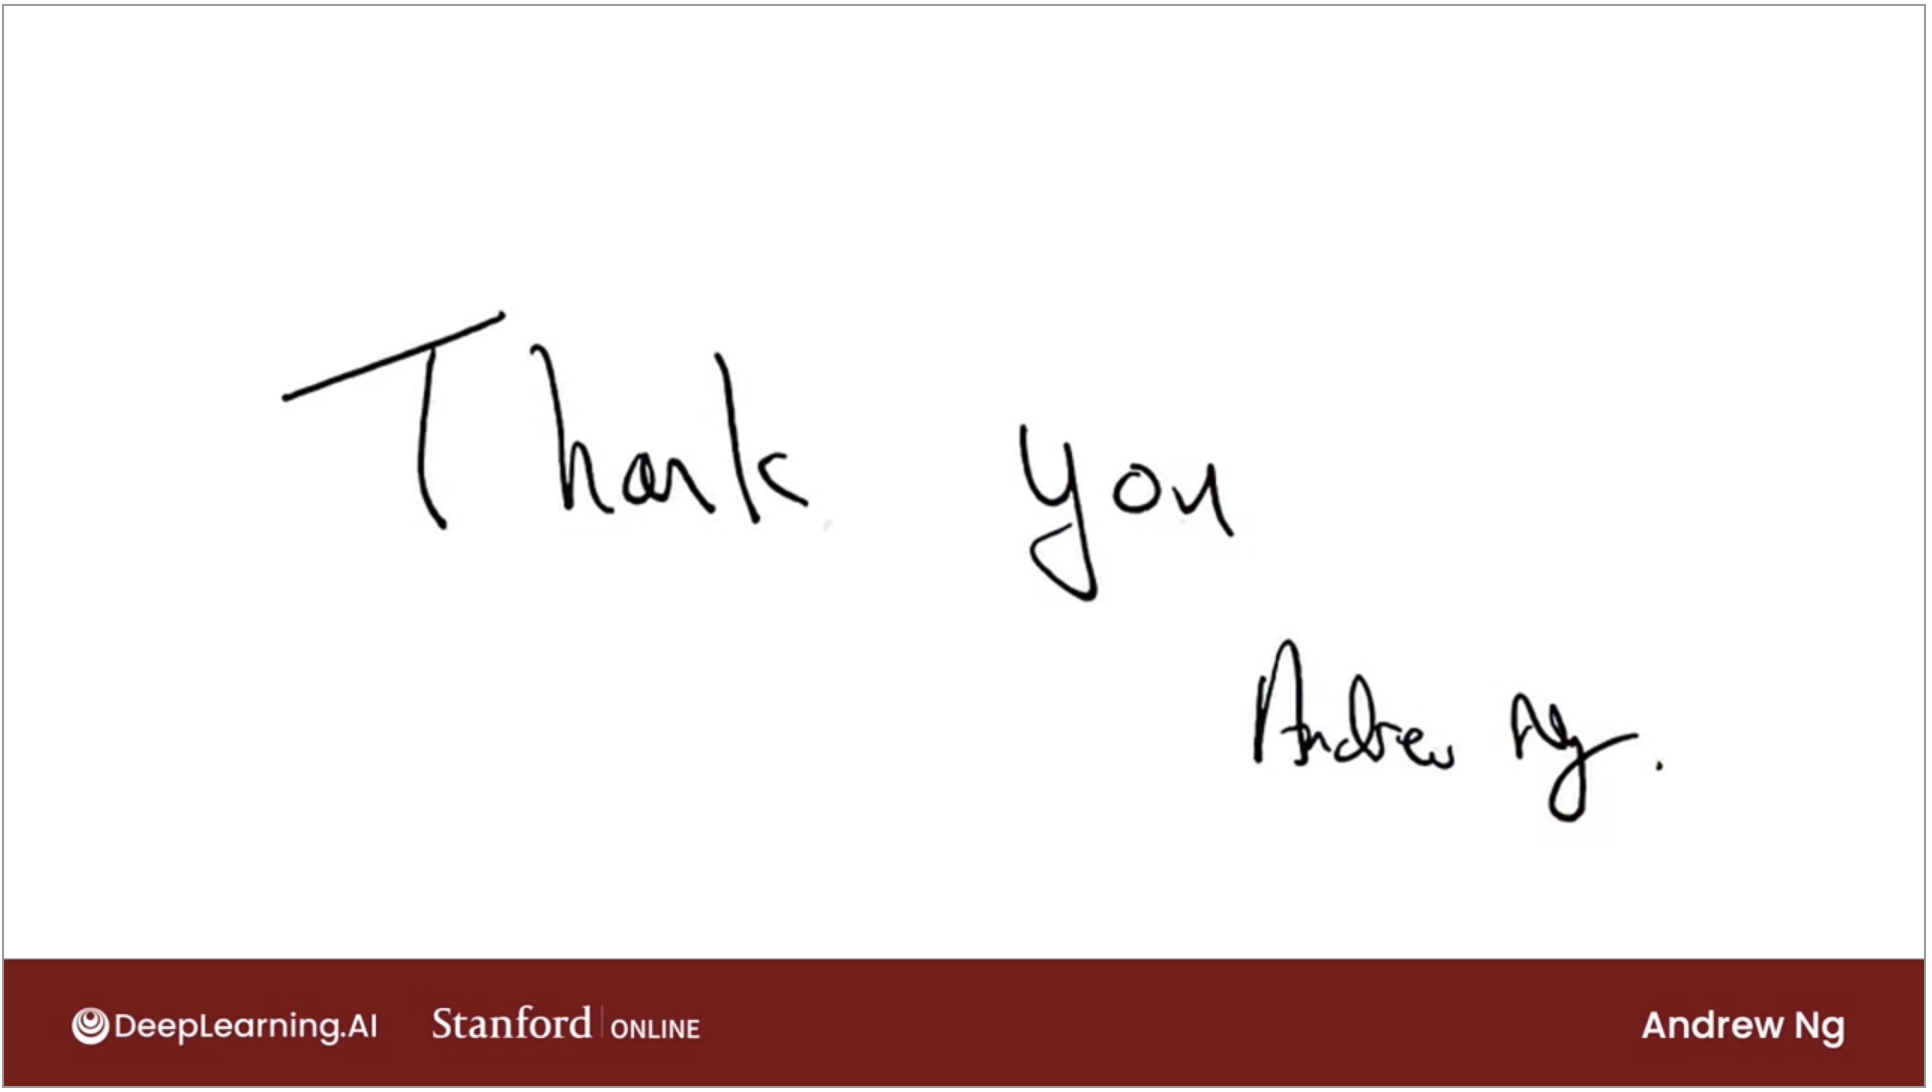 Thank you
Andrew Ng.
DeepLearning.AI Stanford ONLINE Andrew Ng